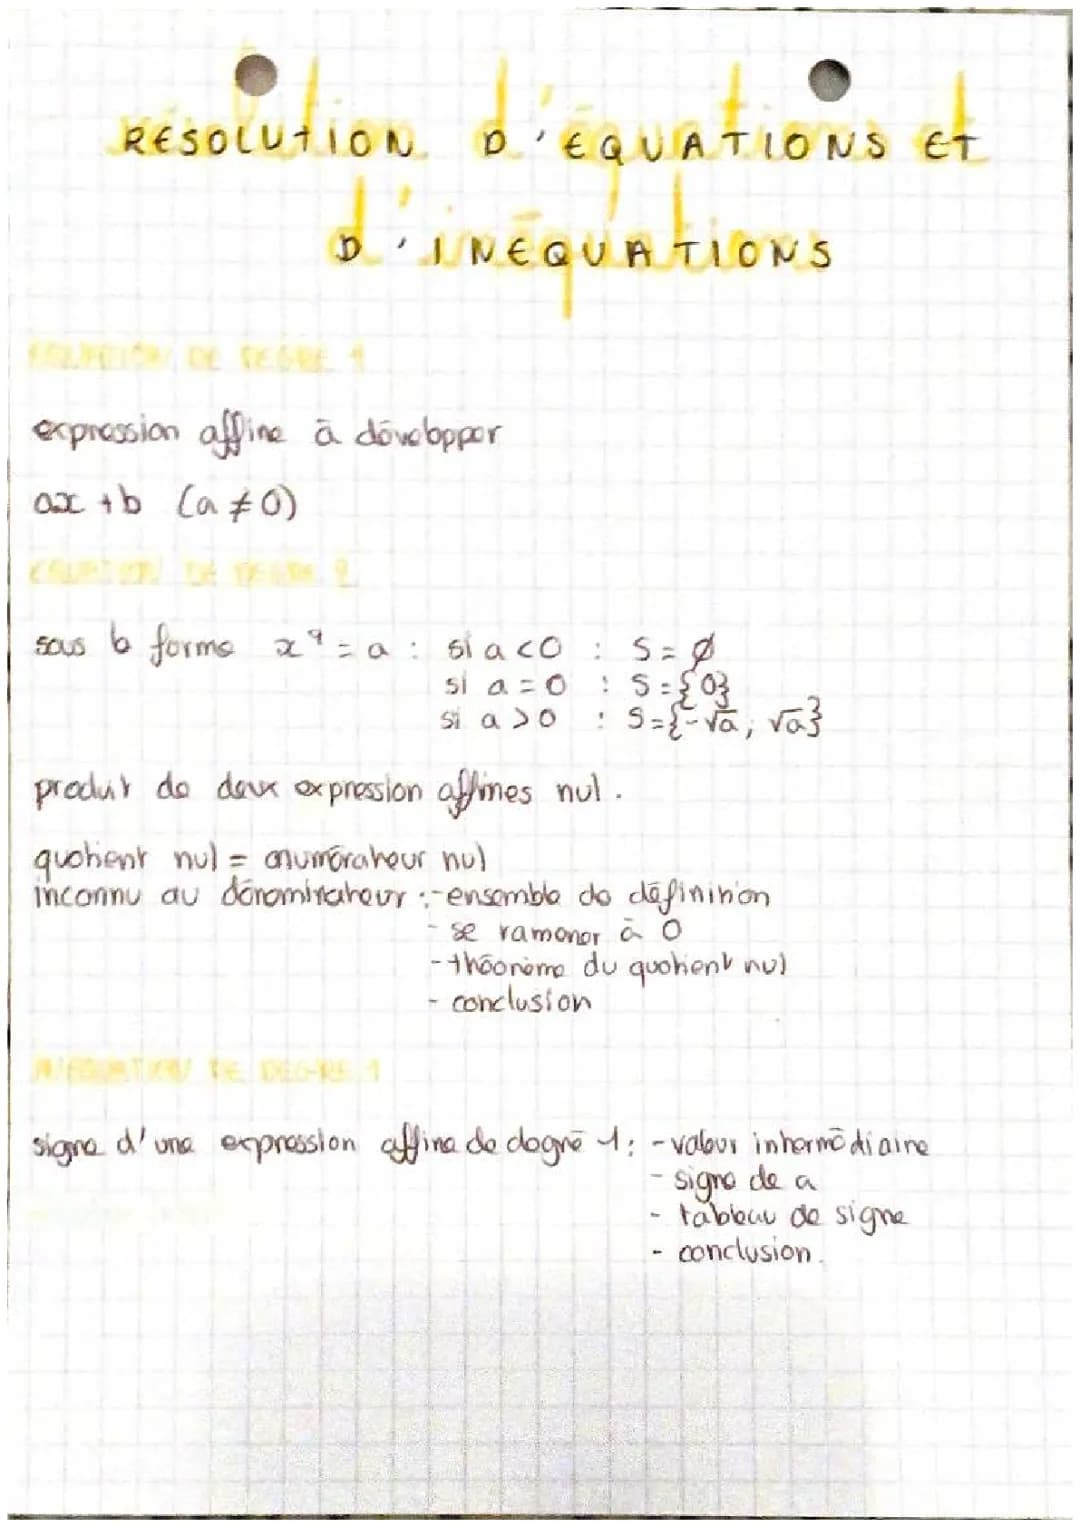 RESOLUTION D'EQUATIONS ET
D'INEQUATIONS
EQUATION DE DEGRE 1
expression affine à développer
ax + b (a ≠ 0)
EQUATION DE DEGRE 2
sous la forme x² = a : si a < 0 : S = ∅
si a = 0 : S = {0}
si a > 0 : S = {-√a ; √a}
produit de deux expression affines nul.
quotient nul = numérateur nul
inconnu au dénominateur : - ensemble de définition
- se ramener à 0
- théorème du quotient nul
- conclusion
INEQUATION DE DEGRE 1
signe d'une expression affine de degré 1 : - valeur intermédiaire
- signe de a
- tableau de signe
- conclusion.